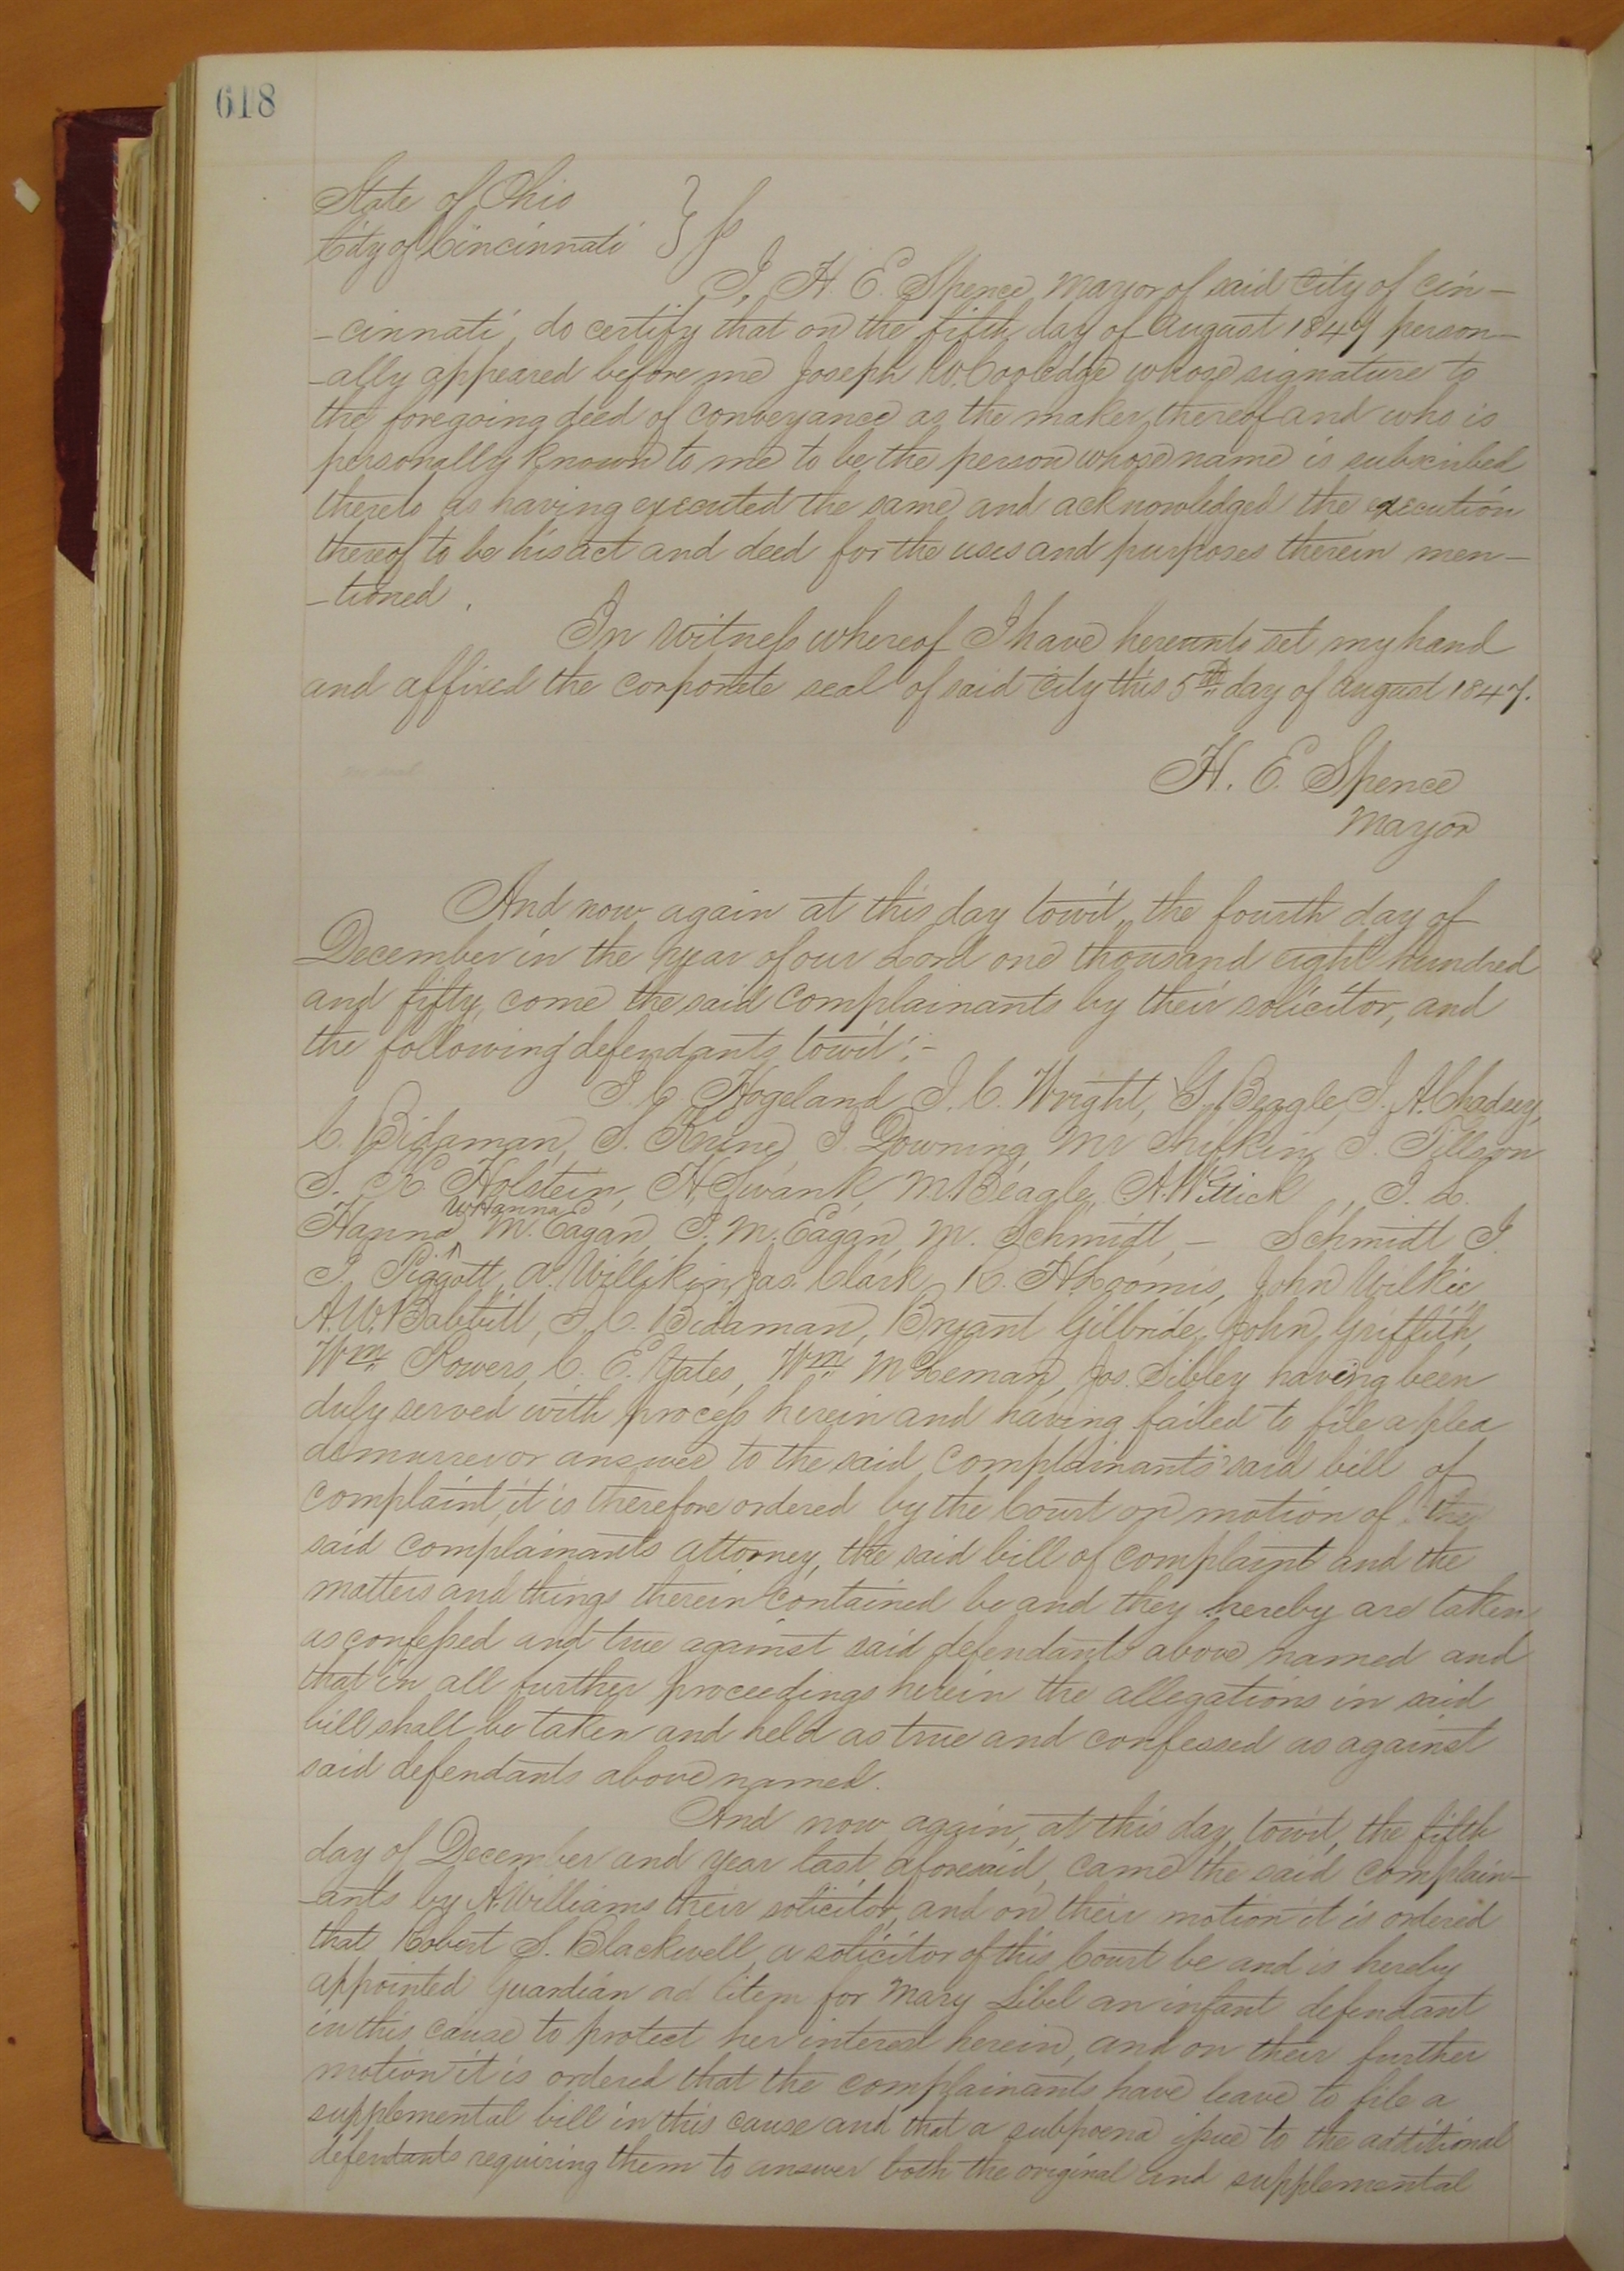 618
State of Ohio
City of Cincinnati } ss
I, H. E. Spence Mayor of said City of Cin-
-cinnati, do certify that on the fifth day of August 1847 person-
-ally appeared before me Joseph W. Coolidge whose signature to
the foregoing deed of conveyance as the maker thereof and who is
personally known to me to be the person whose name is subscribed
thereto as having executed the same and acknowledged the execution
thereof to be his act and deed for the uses and purposes therein men-
-tioned.
In witness whereof I have hereunto set my hand
and affixed the corporate seal of said City this 5th day of August 1847.
H. E. Spence
Mayor
And now again at this day towit, the fourth day of
December in the year of our Lord one thousand eight hundred
and fifty, come the said complainants by their solicitor, and
the following defendants towit;-
I. C. Hogeland I. C. Wright, G. Beagle, I. A. Chadsey,
C. Bidaman, S. Krine, I. Downing, Mr Shifkin, I. Tillson
S. K. Holstein, H Swank, M. Beagle, A. Wittick, I. L.
W Hanna
Hanna, M. Eagan, I. M. Eagan, M. Schmidt, - Schmidt I.
I. Piggott, A. Willikin, Jas. Clark, K. H. Loomis, John Wilkie
A. W. Babbitt, I. C. Bidaman, Bryant Gilbride, John Griffith,
Wm Powers, C. E. Yates, Wm McLeman, Jos. Sibley having been
duly served with process herein and having failed to file a plea
demurrer or answer to the said complainants' said bill of
complaint, it is therefore ordered by the Court on motion of the
said complainants attorney, the said bill of complaint and the
matters and things therein contained be and they hereby are taken
as confessed and true against said defendants above named and
that in all further proceedings herein the allegations in said
bill shall be taken and held as true and confessed as against
said defendants above named.
And now again, at this day, towit, the fifth
day of December and year last aforesaid, came the said complain-
-ants by A. Williams their solicitor, and on their motion it is ordered
that Robert S. Blackwell, a solicitor of this Court be and is hereby
appointed guardian ad litem for Mary Sibel an infant defendant
in this cause to protect her interest herein, and on their further
motion it is ordered that the complainants have leave to file a
supplemental bill in this cause and that a subpoena issue to the additional
defendants requiring them to answer both the original and supplemental